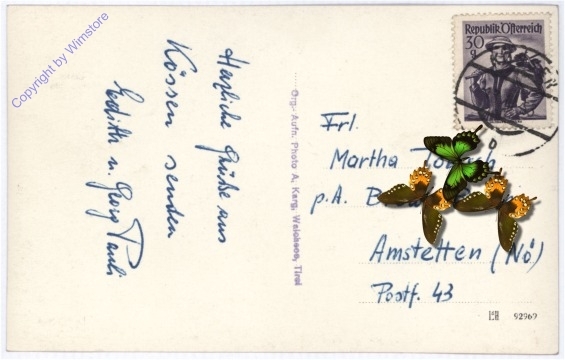 Copyright by Wimstore
Herzliche Grüße aus
Kössen senden
Edith u. Georg Pauli
Org.- Aufn. Photo A. Karg, Walchsee, Tirol
Republik Österreich
30
g
Frl.
Martha
p.A.
Amstetten (Nö)
Postf. 43
92969